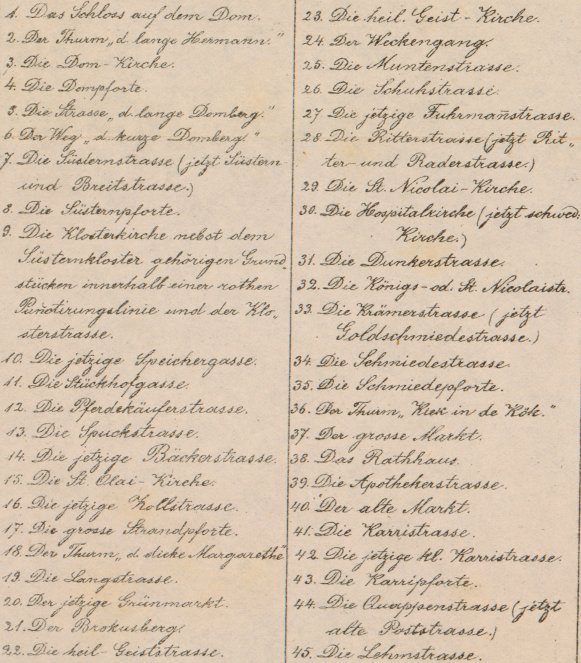 1. Das Schloss auf dem Dom.
2. Der Thurm „d. lange Hermann."
3. Die Dom-Kirche.
4. Die Dompforte.
5. Die Strasse „d. lange Domberg."
6. Der Weg „d. kurze Domberg."
7. Die Süsternstrasse (jetzt Süstern-
und Breitstrasse.)
8. Die Süsternpforte.
9. Die Klosterkirche nebst dem
Süsternkloster gehörigen Grund-
stücken innerhalb einer rothen
Punotirungslinie und der Klo-
sterstrasse.
10. Die jetzige Speichergasse.
11. Die Stückhofgasse.
12. Die Pferdekäuferstrasse.
13. Die Spuckstrasse.
14. Die jetzige Bäckerstrasse.
15. Die St. Olai-Kirche.
16. Die jetzige Zollstrasse.
17. Die grosse Strandpforte.
18. Der Thurm „d. dicke Margarethe"
19. Die Langstrasse.
20. Der jetzige Grünmarkt.
21. Der Brokusberg.
22. Die heil-Geiststrasse.
23. Die heil. Geist-Kirche.
24. Der Weckengang.
25. Die Muntenstrasse.
26. Die Schuhstrasse.
27. Die jetzige Fuhrmanstrasse.
28. Die Ritterstrasse (jetzt Rit-
ter- und Raderstrasse.)
29. Die St. Nicolai-Kirche.
30. Die Hospitalkirche (jetzt schwed.
Kirche.)
31. Die Dunkerstrasse.
32. Die Königs- od. St. Nicolaistr.
33. Die Krämerstrasse (jetzt
Goldschmiedestrasse.)
34. Die Schmiedestrasse.
35. Die Schmiedepforte.
36. Der Thurm „Kiek in de Kök."
37. Der grosse Markt.
38. Das Rathhaus.
39. Die Apothekerstrasse.
40. Der alte Markt.
41. Die Karristrasse.
42. Die jetzige kl. Karristrasse.
43. Die Karripforte.
44. Die Quappenstrasse (jetzt
alte Poststrasse.)
45. Die Lehmstrasse.